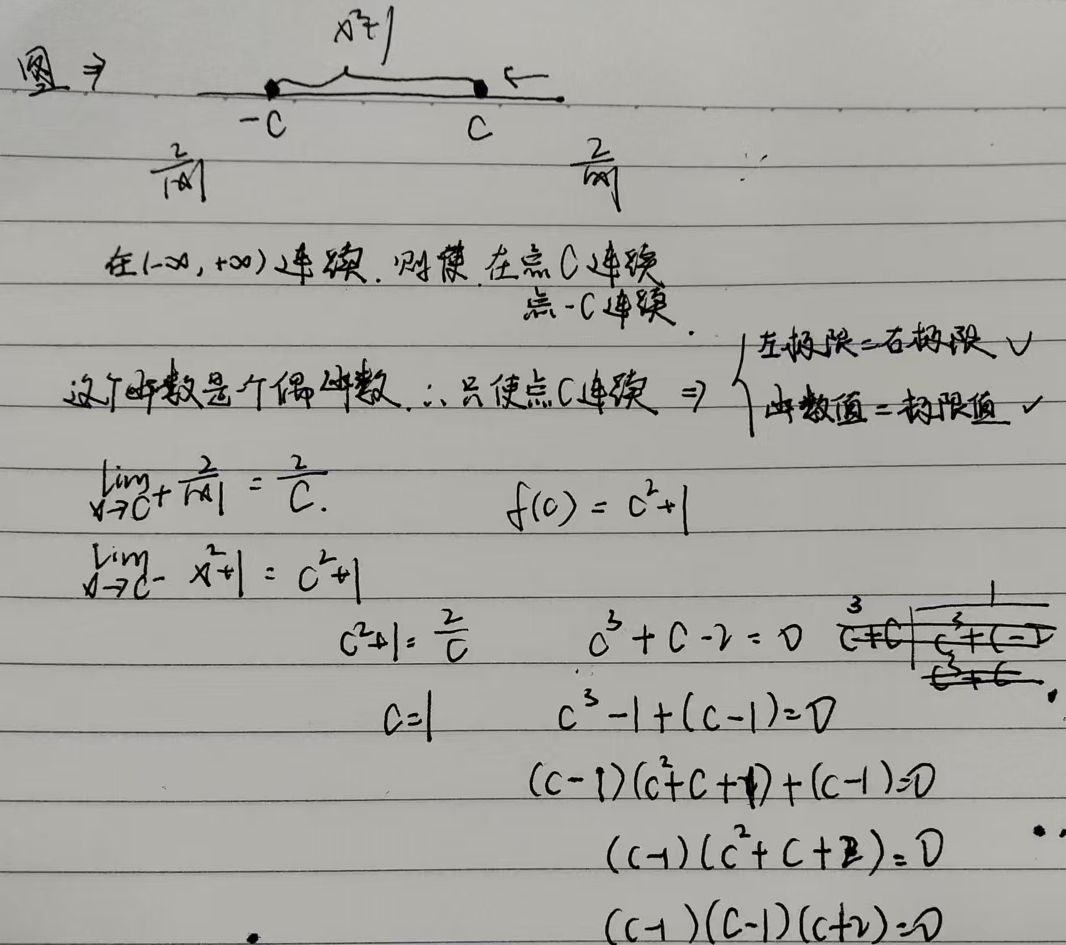 图 ⇒ x²+1
-C C ←
2/|x| 2/|x|
在(-∞, +∞)连续. 则使 在点C连续
点-C连续.
左极限=右极限 ✓
这个函数是个偶函数. ∴只使点C连续 ⇒ { 函数值=极限值 ✓
lim x→C+ 2/|x| = 2/C. f(c) = c²+1
lim x→C- x²+1 = c²+1
c²+1 = 2/C c³+C-2=0
C=1 c³-1+(c-1)=0
(c-1)(c²+C+1)+(c-1)=0
(c-1)(c²+C+2)=0
(c-1)(c-1)(c+2)=0